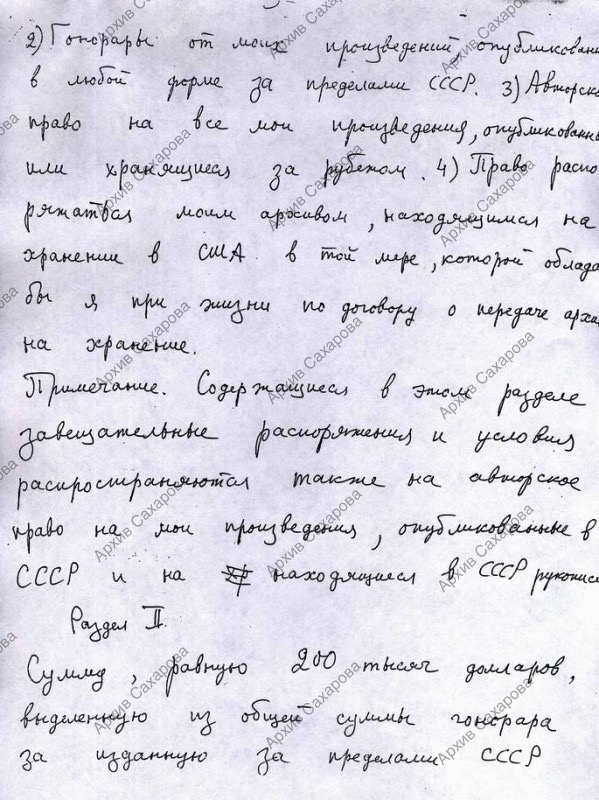 2) Гонорары от моих произведений, опубликован
в любой форме за пределами СССР. 3) Авторско
право на все мои произведения, опубликованны
или хранящиеся за рубежом. 4) Право распо
ряжаться моим архивом, находящимся на
хранении в США в той мере, которой облада
бы я при жизни по договору о передаче архи
на хранение.
Примечание. Содержащиеся в этом разделе
завещательные распоряжения и условия
распространяются также на авторское
право на мои произведения, опубликованные в
СССР и на находящиеся в СССР рукописи
Раздел II.
Сумму, равную 200 тысяч долларов,
выделенную из общей суммы гонорара
за изданную за пределами СССР
Архив Сахарова